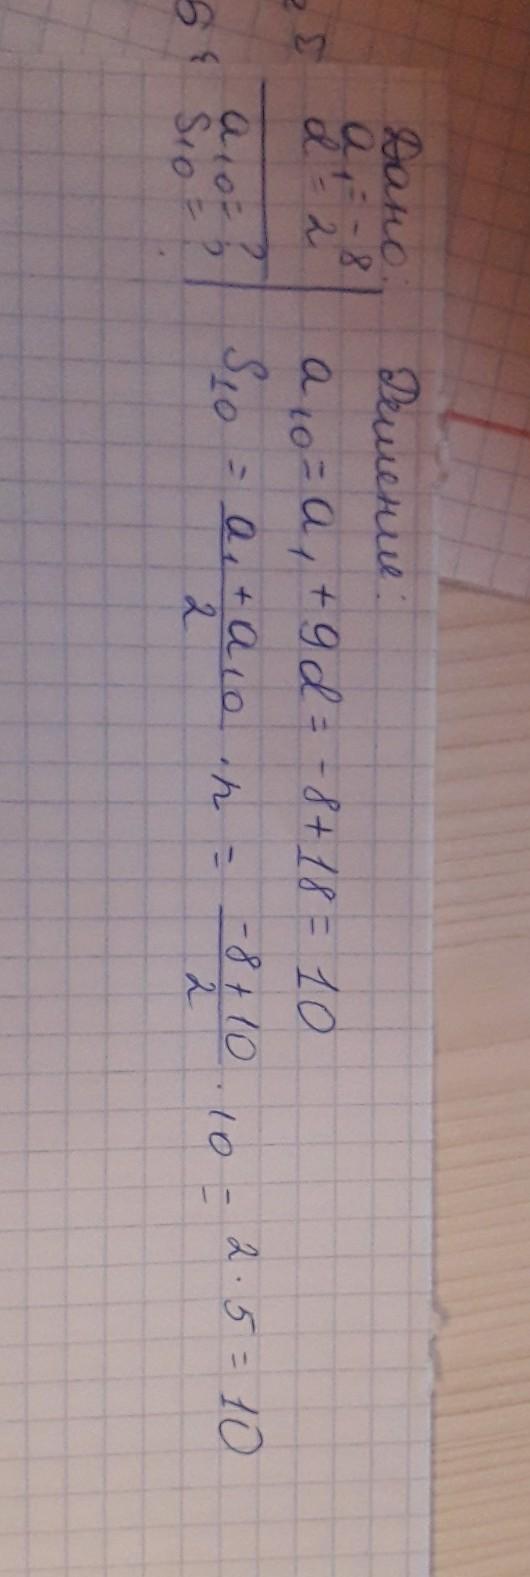 Дано:
a₁ = -8
d = 2
a₁₀ = ?
S₁₀ = ?
Решение:
a₁₀ = a₁ + 9d = -8 + 18 = 10
S₁₀ = (a₁ + a₁₀)/2 · n = (-8 + 10)/2 · 10 = 2 · 5 = 10